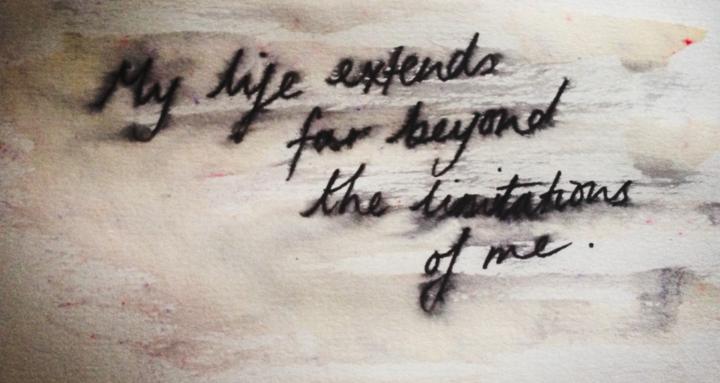 My life extends
far beyond
the limitations
of me.